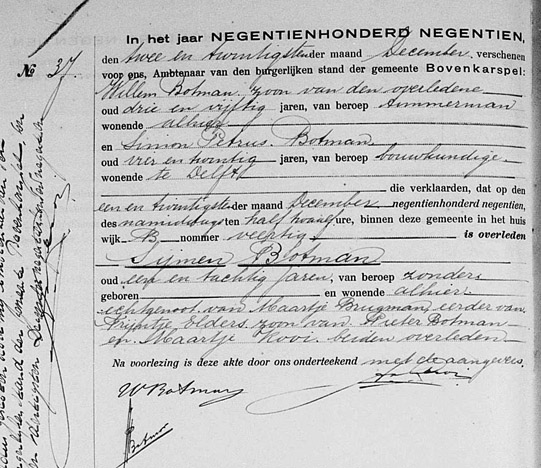 In het jaar NEGENTIENHONDERD NEGENTIEN,
den twee en twintigsten der maand December, verschenen
No 37.
voor ons, Ambtenaar van den burgerlijken stand der gemeente Bovenkarspel:
Willem Botman, zoon van den overledene
oud drie en vijftig jaren, van beroep timmerman
wonende alhier
en Simon Petrus Botman
oud vier en twintig jaren, van beroep bouwkundige
wonende te Delft
die verklaarden, dat op den
een en twintigsten der maand December negentienhonderd negentien,
des namiddags ten half twaalf ure, binnen deze gemeente in het huis
wijk B nommer veertig is overleden
Symen Botman
oud een en tachtig jaren, van beroep zonder
geboren en wonende alhier
echtgenoot van Maartje Brugman, eerder van
Trijntje Olders, zoon van Pieter Botman
en Maartje Kooi, beiden overleden
Na voorlezing is deze akte door ons onderteekend met de aangevers.
W Botman
Botman